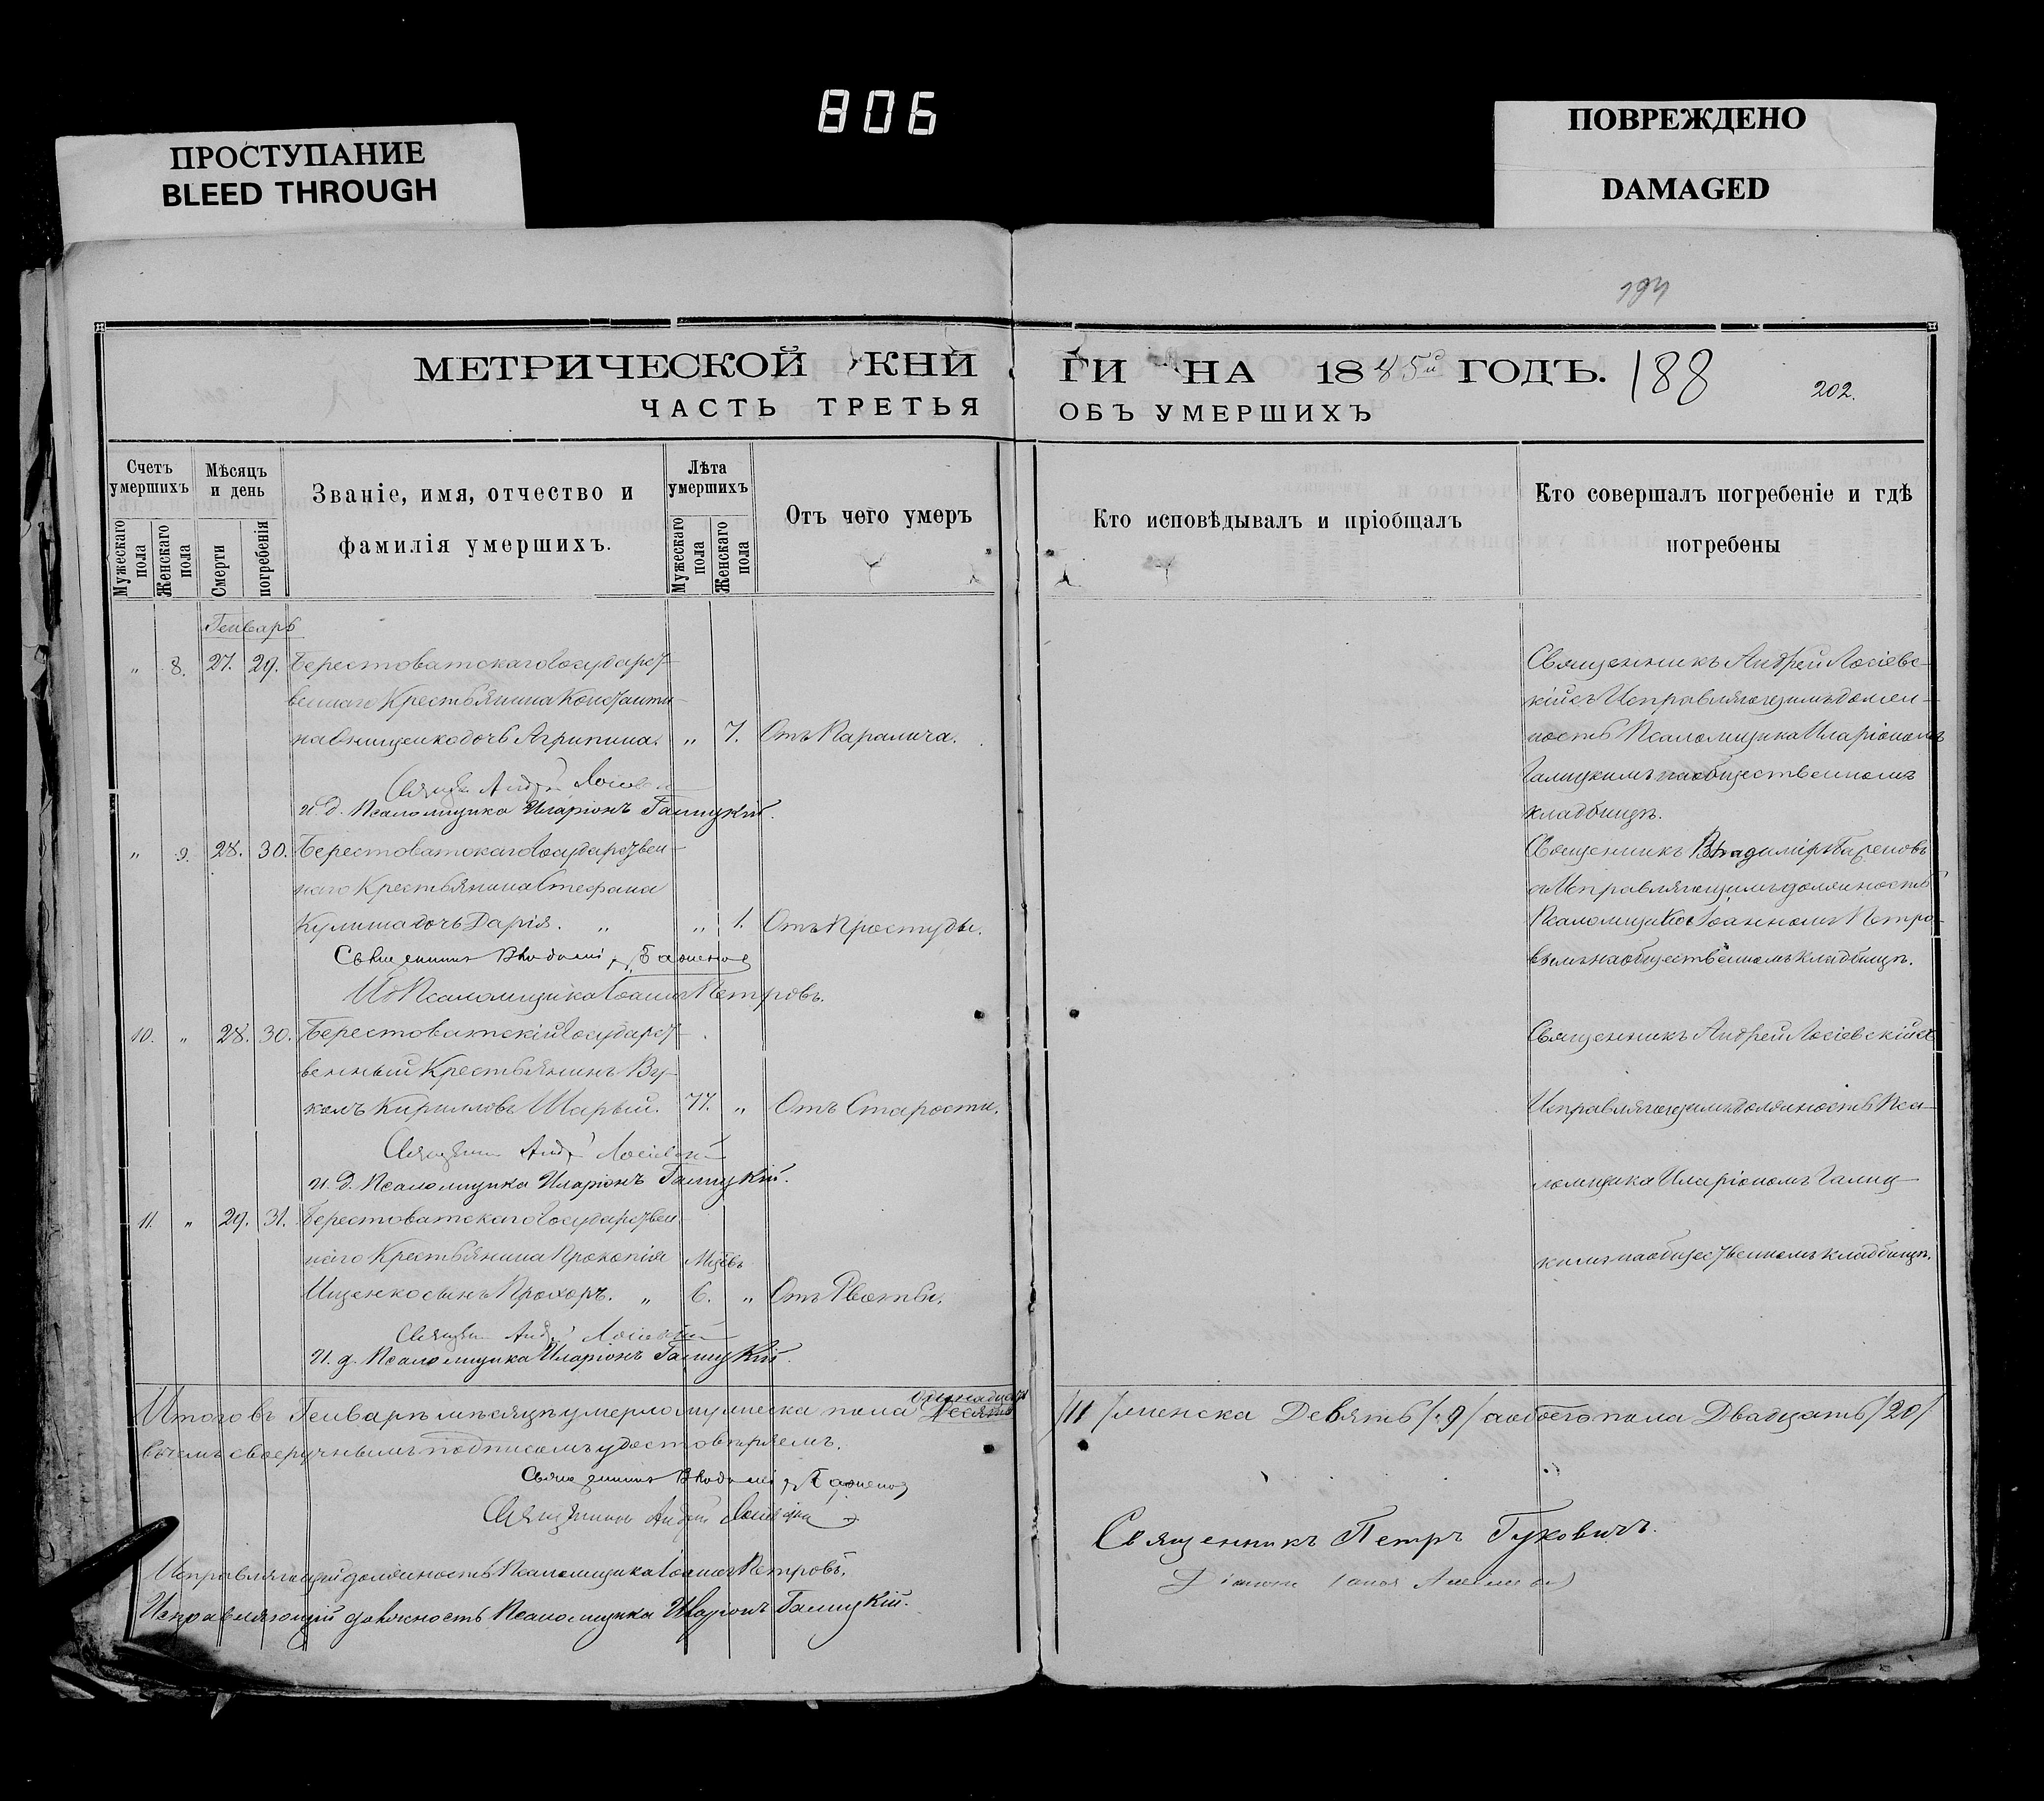 806
ПРОСТУПАНИЕ
BLEED THROUGH
ПОВРЕЖДЕНО
DAMAGED
194
МЕТРИЧЕСКОЙ КНИ
ЧАСТЬ ТРЕТЬЯ
ГИ НА 1885й ГОДЪ. 188
202.
ОБЪ УМЕРШИХЪ
Счетъ умершихъ
Мужескаго пола
Женскаго пола
Мѣсяцъ и день
Смерти
погребенія
Званіе, имя, отчество и
фамилія умершихъ.
Лѣта умершихъ
Мужескаго пола
Женскаго пола
Отъ чего умеръ
Кто исповѣдывалъ и пріобщалъ
Кто совершалъ погребеніе и гдѣ
погребены
Генварь
„ 8. 27. 29. Берестоватскаго Государст-
веннаго Крестьянина Константи-
на Онищенко дочь Агрипина. „ 7. Отъ Паралича.
Священ Андрей Лосіевскій
И. д. Псаломщика Иларіонъ Галицкій.
Священникъ Андрей Лосіевс-
кій съ Исправляющимъ долж-
ность Псаломщика Иларіономъ
Галицкимъ на общественномъ
кладбищѣ.
„ 9. 28. 30. Берестоватскаго Государствен-
наго Крестьянина Стефана
Кулиша дочь Дарія. „ „ 1. Отъ Простуды.
Священникъ Владимі
ИД Псаломщика Іоаннъ Петровъ.
Священникъ Владиміръ
съ Исправляющимъ должность
Псаломщика Іоанномъ Петро-
вымъ на общественномъ кладбищѣ.
10. „ 28. 30. Берестоватскій Государст-
венный Крестьянинъ Ву-
колъ Кирилловъ Шарый. 77. „ Отъ Старости.
Священникъ Андрей Лосіевскій
И. д. Псаломщика Иларіонъ Галицкій.
Священникъ Андрей Лосіевскій съ
Исправляющимъ должность Пса-
ломщика Иларіономъ Галиц-
кимъ на общественномъ кладбищѣ.
11. „ 29. 31. Берестоватскаго Государствен-
наго Крестьянина Прокопія Мцѣвъ
Ищенко сынъ Прохоръ. „ 6. „ Отъ Рвоты.
Священ Андрей Лосіевскій
И. д. Псаломщика Иларіонъ Галицкій.
одинадцать
Итого въ Генварѣ мѣсяцѣ умерло мужеска пола Десять /11/ женска Девять /9/ а обоего пола Двадцать /20/
въ чемъ своеручнымъ подписомъ удостовѣряемъ.
Священникъ Владимі
Священникъ Андрей Лосіевскій
Исправляющій должность Псаломщика Іоаннъ Петровъ.
Исправляющій должность Псаломщика Иларіонъ Галицкій.
Священникъ Петръ Гуковичъ.
Діаконъ